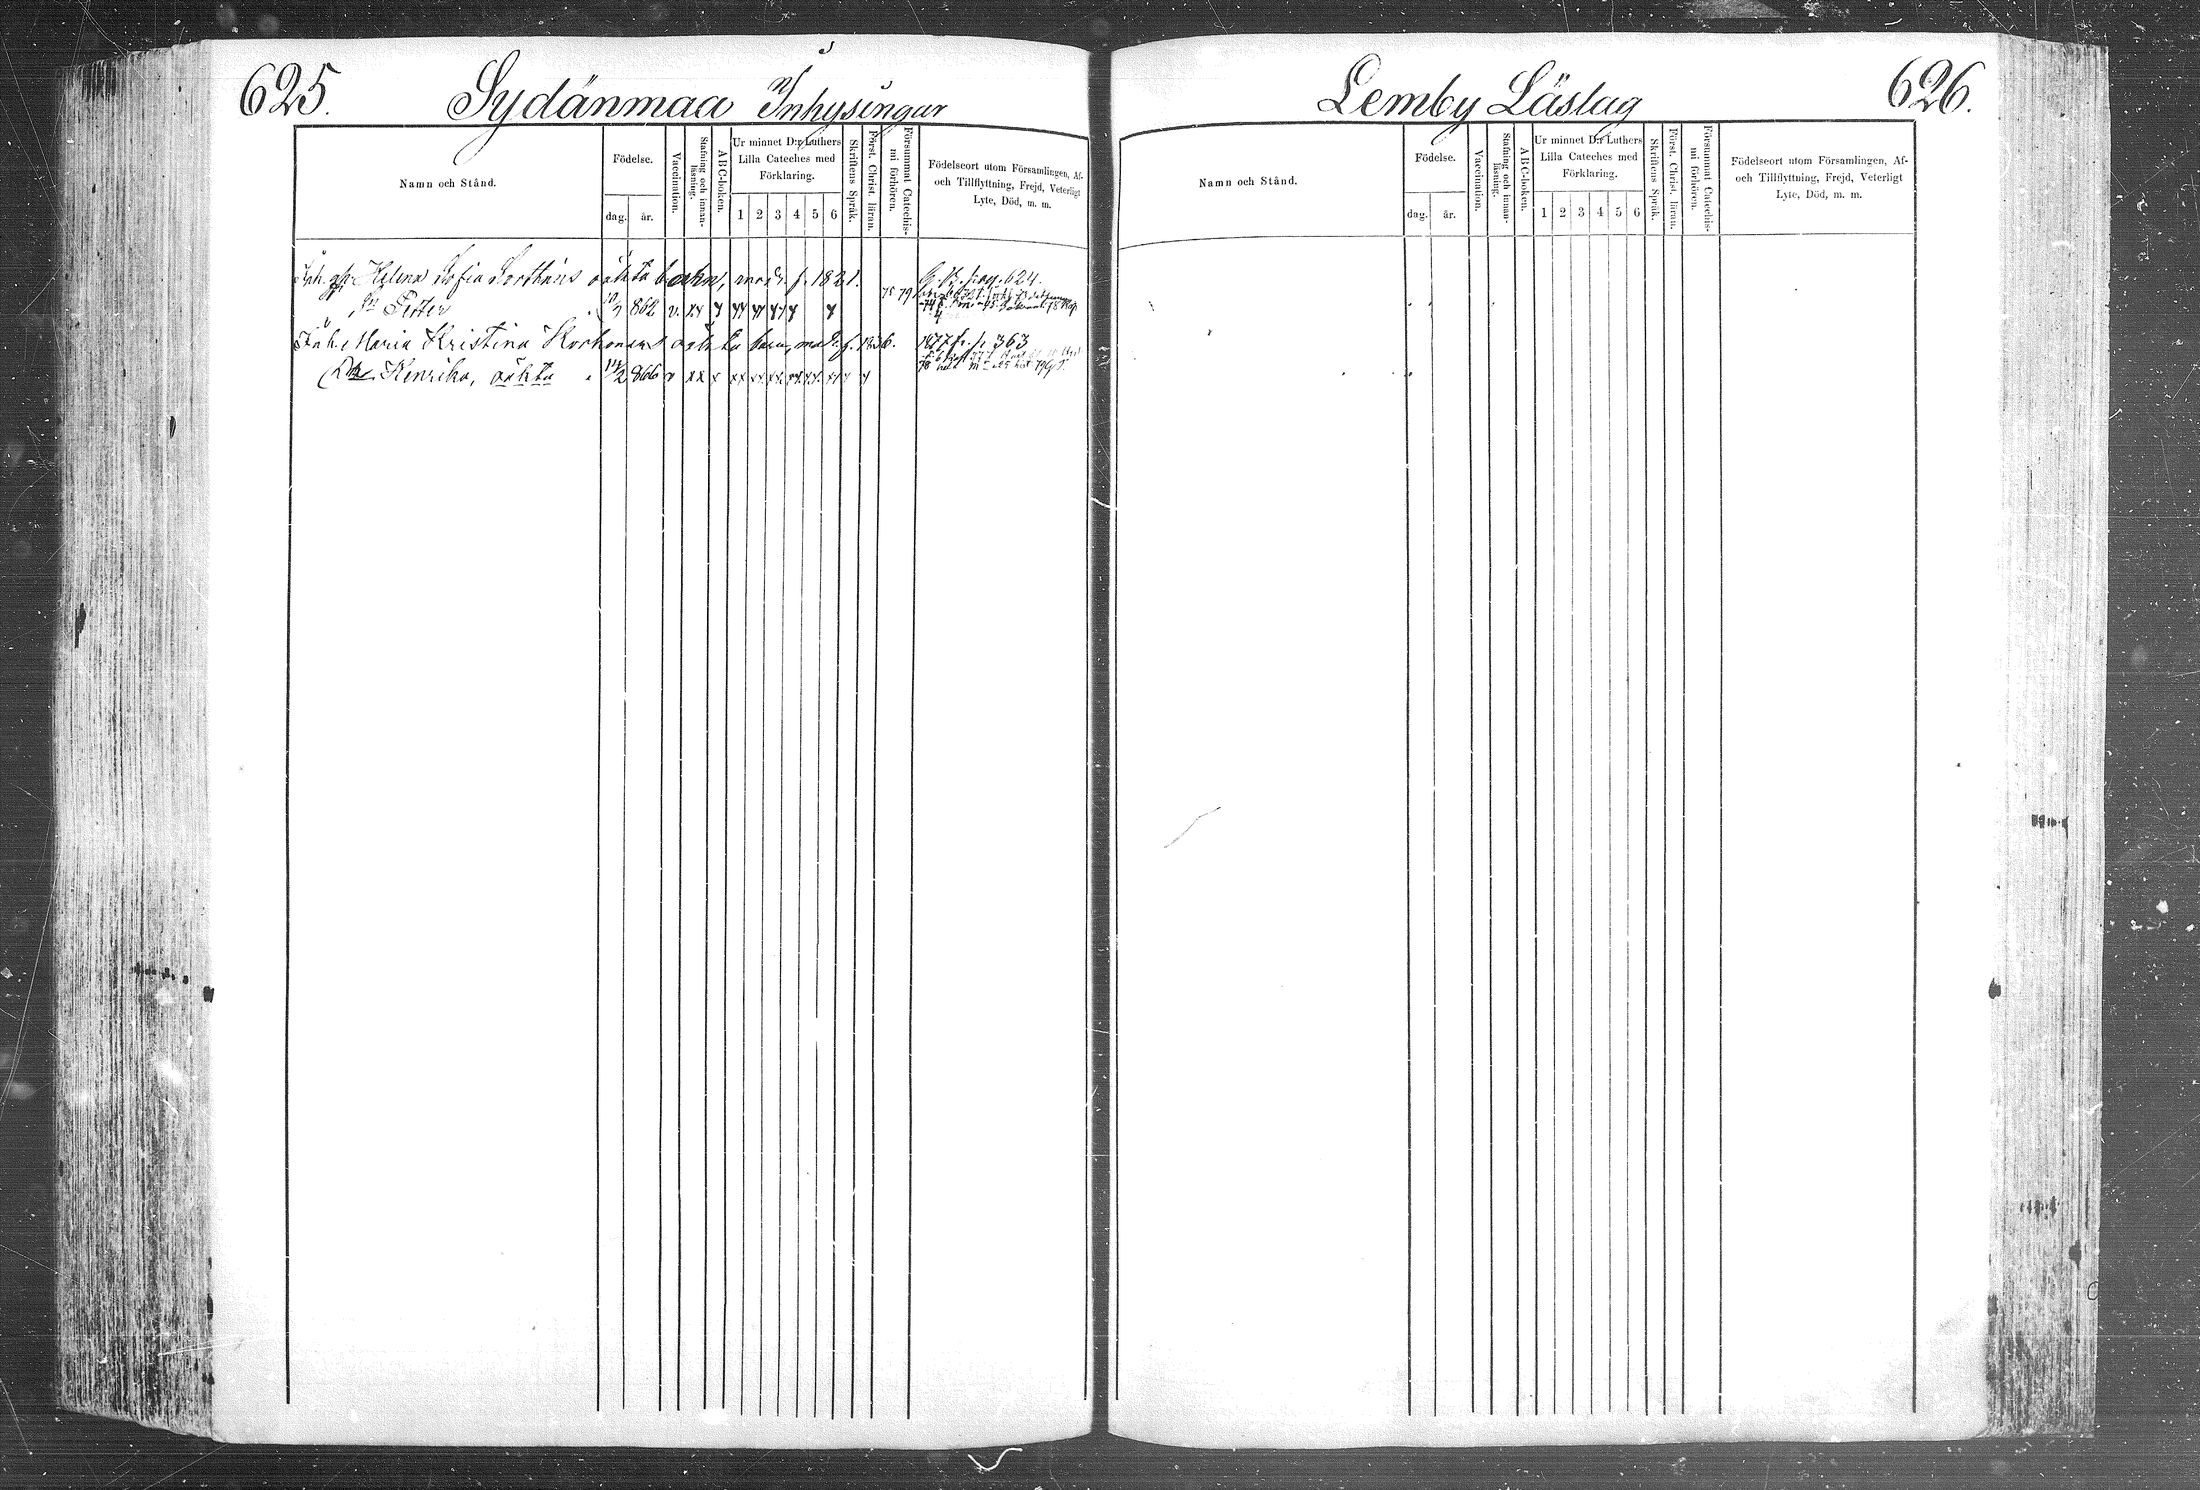 625. Sydänmaa Inhysingar
Namn och Stånd.
Födelse.
dag.
år.
Vaccination.
Stafning och innan-
läsning.
ABC-boken.
Ur minnet D:r Luthers
Lilla Cateches med
Förklaring.
1 2 3 4 5 6
Skriftens Språk.
Först. Christ. läran.
Försummat Catechis-
mi förhören.
Födelseort utom Församlingen, Af-
och Tillflyttning, Frejd, Veterligt
Lyte, Död, m. m.
Helena Sofia oäkta barn, modr. f. 1821. 75 79 pag. 624.
Petter 862 v.
Inh. Maria Kristina oäkta barn, modr. f. 1836. 1877 fr. p. 363
Henrika, oäkta 866 v
Lemby Läslag 626.
Namn och Stånd.
Födelse.
dag.
år.
Vaccination.
Stafning och innan-
läsning.
ABC-boken.
Ur minnet D:r Luthers
Lilla Cateches med
Förklaring.
1 2 3 4 5 6
Skriftens Språk.
Först. Christ. läran.
Försummat Catechis-
mi förhören.
Födelseort utom Församlingen, Af-
och Tillflyttning, Frejd, Veterligt
Lyte, Död, m. m.